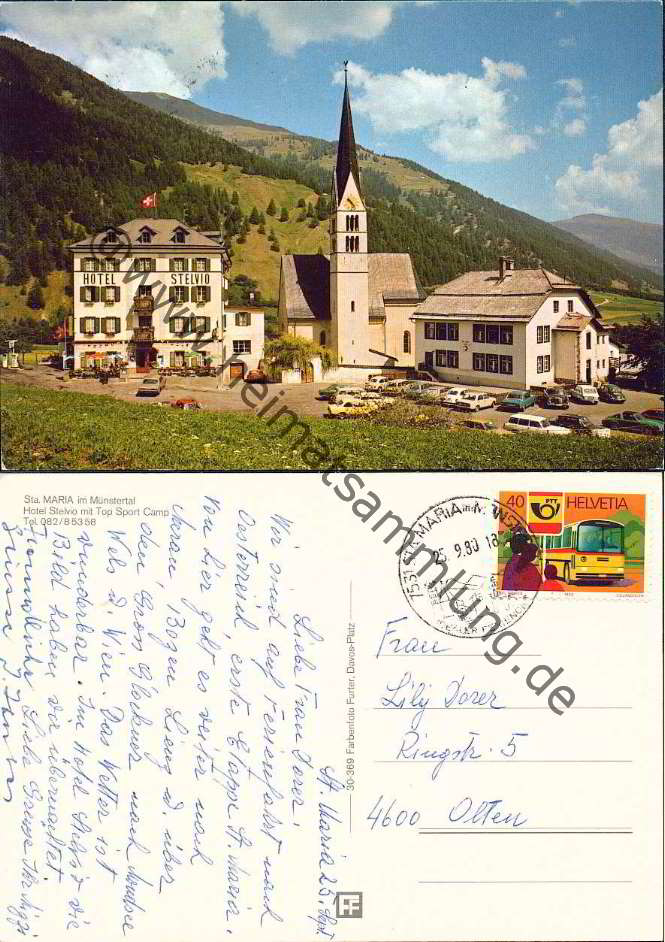 HOTEL STELVIO
© www.heimatsammlung.de
Sta. MARIA im Münstertal
Hotel Stelvio mit Top Sport Camp
Tel. 082/85358
30-369 Farbenfoto Furter, Davos-Platz
7531 STA. MARIA
25.9.80 18
40 PTT HELVETIA
Frau
Lily Dorer
Ringstr. 5
4600 Olten
St. Maria 25. Sept
Liebe Frau Dorer!
Wir sind auf Ferienfahrt nach
Oesterreich erste Etappe St. Maria.
Von hier geht es weiter nach
Meran, Bozen Lienz d. über
den Gross Glockner nach Mondsee
Wels d Wien. Das Wetter ist
wunderbar. Im Hotel selbst die
Bild haben wir übernachtet
Freundliche Liebe Grüsse
Grüsse